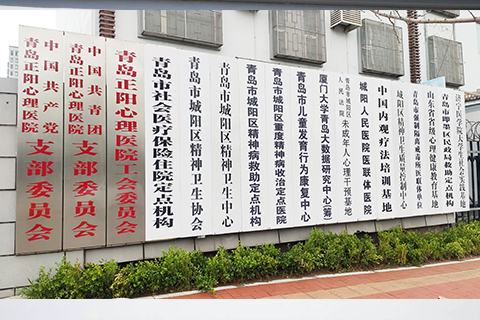 中国共产党
青岛正阳心理医院
支部委员会
中国共青团
青岛正阳心理医院
支部委员会
青岛正阳心理医院工会委员会
青岛市社会医疗保险住院定点机构
青岛市城阳区精神卫生协会
青岛市城阳区精神卫生中心
青岛市城阳区精神病救助定点机构
青岛市城阳区重度精神病收治定点医院
青岛市儿童发育行为康复中心
厦门大学青岛大数据研究中心(筹)
青岛市城阳区
人民法院
未成年人心理干预基地
城阳人民医院医联体医院
中国内观疗法培训基地
城阳区精神卫生质量控制中心
青岛市强制隔离戒毒所医联体单位
山东省省级心理健康教育基地
青岛市即墨区民政局救助定点机构
济宁医学院大学生社会实践基地